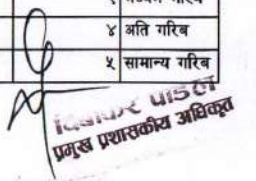 ४ अति गरिब
५ सामान्य गरिब
दिवाकर पौडेल
प्रमुख प्रशासकीय अधिकृत